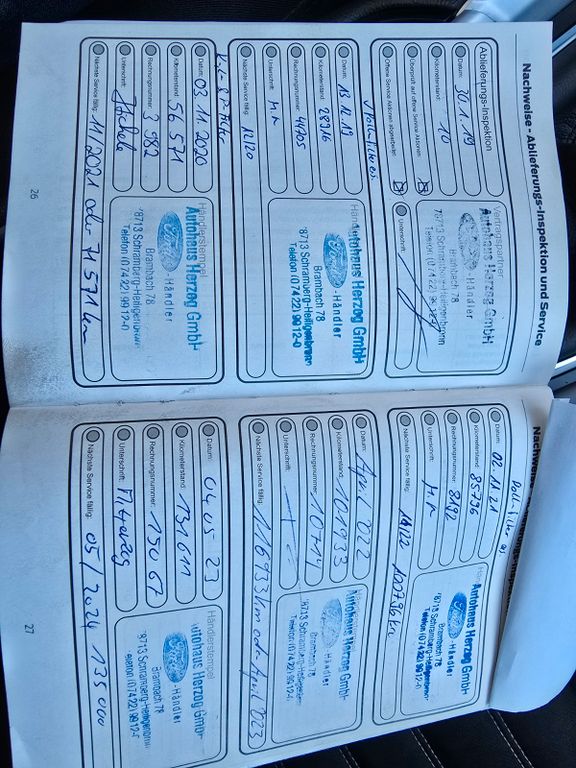 Nachweise - Ablieferungs-Inspektion und Service
Ablieferungs-Inspektion
Datum: 30.1.19
Kilometerstand: 10
Überprüft auf offene Service Aktionen:
Offene Service Aktionen abgearbeitet:
Vertragspartner
Autohaus Herzog GmbH
Ford
-Händler
Brambach 78
78713 Schramberg-Heiligenbronn
Telefon (07422) 9912-0
Unterschrift:
Datum: 13.12.19
Kilometerstand: 28916
Rechnungsnummer: 44705
Unterschrift:
Nächste Service fällig: 12/20
Autohaus Herzog GmbH
Ford
-Händler
Brambach 78
78713 Schramberg-Heiligenbronn
Telefon (07422) 9912-0
Datum: 03.11.2020
Kilometerstand: 56 571
Rechnungsnummer: 3 982
Unterschrift:
Nächste Service fällig: 11/2021 oder 71 571 km
Händlerstempel
Autohaus Herzog GmbH
Ford
-Händler
Brambach 78
78713 Schramberg-Heiligenbronn
Telefon (07422) 9912-0
26
Datum: 02.11.21
Kilometerstand: 85796
Rechnungsnummer: 8192
Unterschrift:
Nächste Service fällig: 11/22 100796 km
Autohaus Herzog GmbH
Ford
-Händler
Brambach 78
78713 Schramberg-Heiligenbronn
Telefon (07422) 9912-0
Datum: April 2022
Kilometerstand: 101933
Rechnungsnummer: 10714
Unterschrift:
Nächste Service fällig: 116933 km oder April 2023
Autohaus Herzog GmbH
Ford
-Händler
Brambach 78
78713 Schramberg-Heiligenbronn
Telefon (07422) 9912-0
Datum: 04.05.23
Kilometerstand: 131611
Rechnungsnummer: 15067
Unterschrift:
Nächste Service fällig: 05/2024 135000
Händlerstempel
Autohaus Herzog GmbH
Ford
-Händler
Brambach 78
78713 Schramberg-Heiligenbronn
Telefon (07422) 9912-0
27